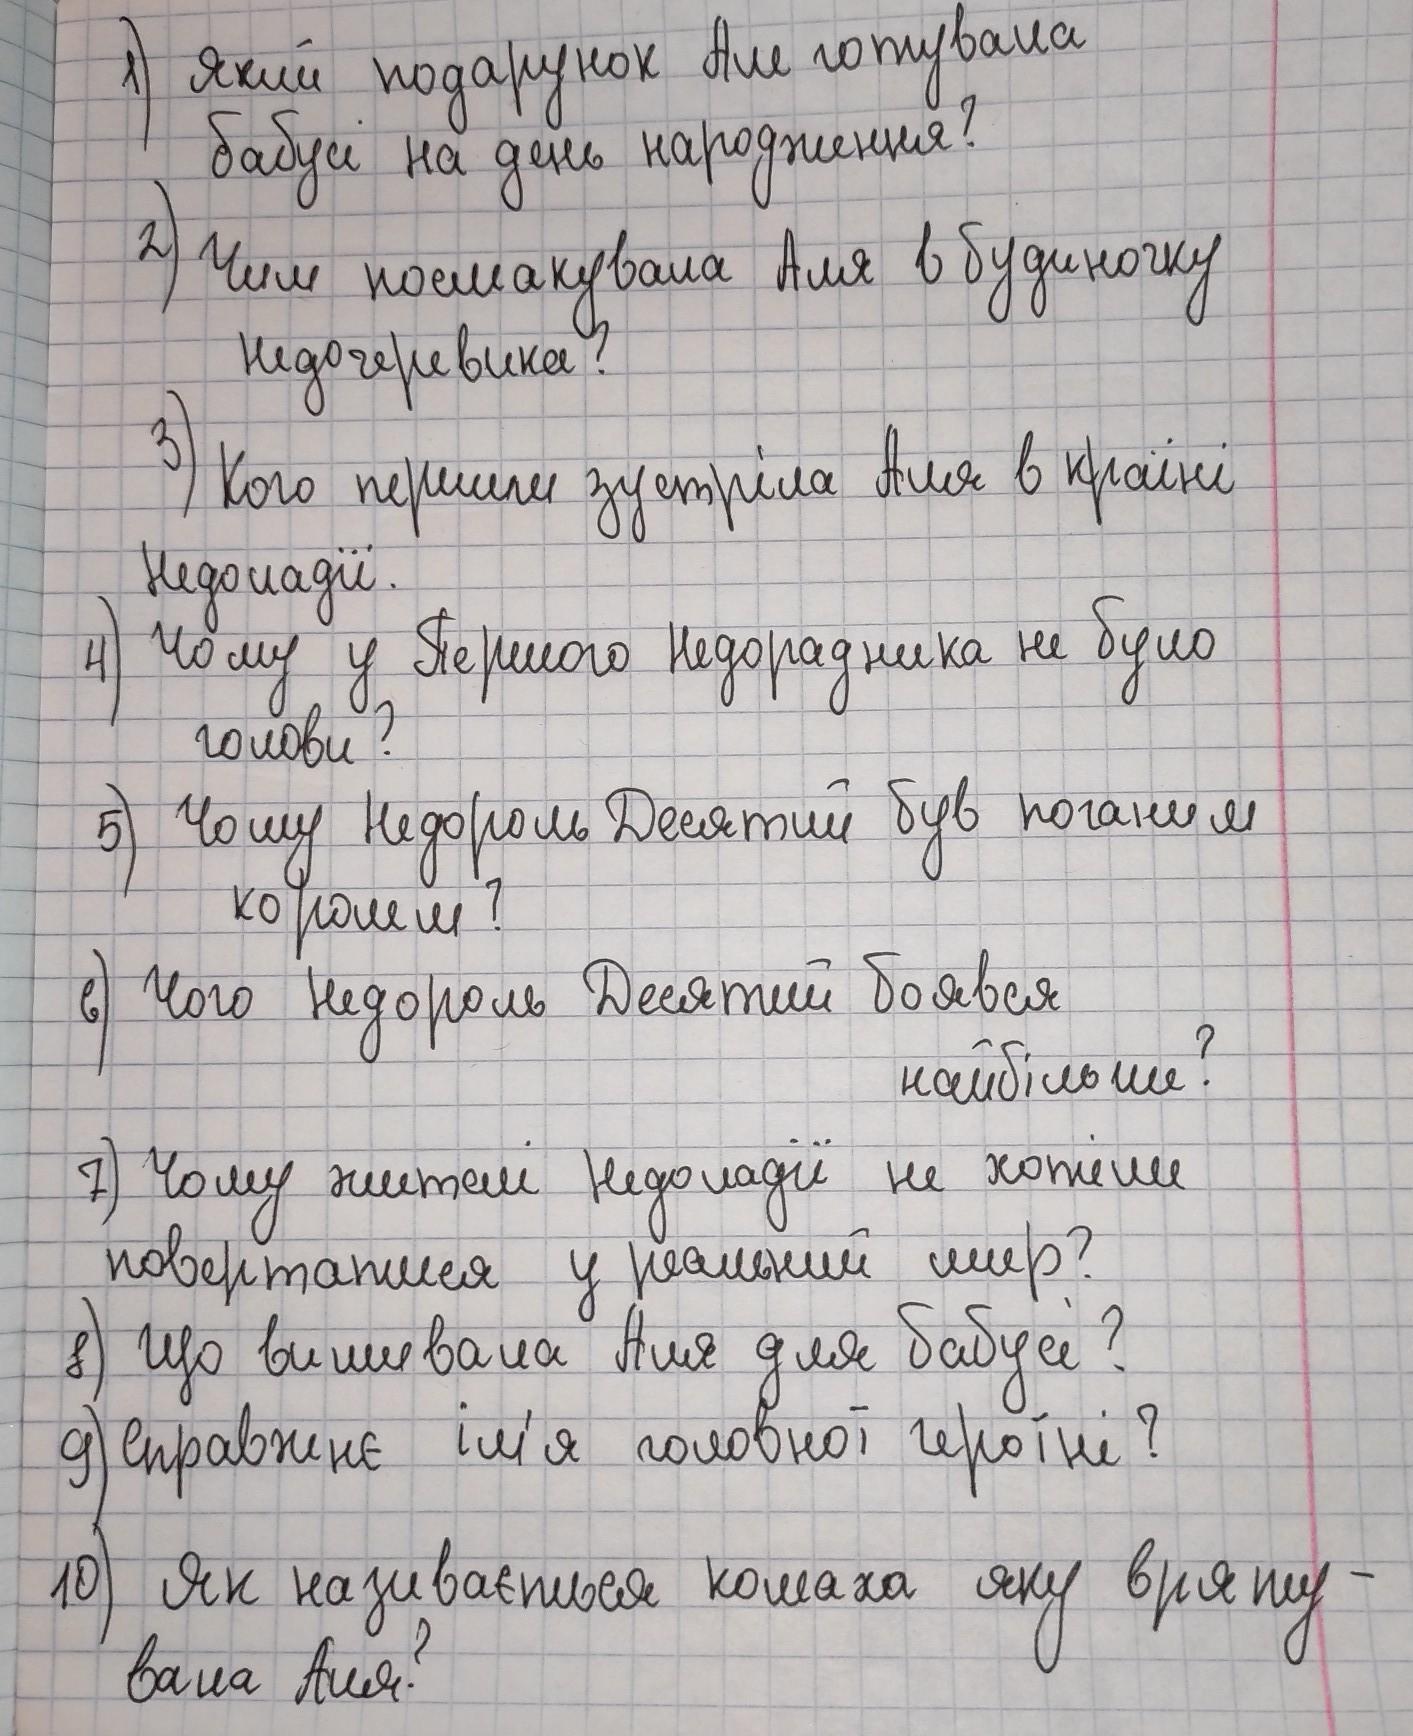 1) Який подарунок Аля готувала
бабусі на день народження?
2) Чим посмакувала Аля в будиночку
Недочеревика?
3) Кого першим зустріла Аля в країні
Недоладії.
4) Чому у Першого Недорадника не було
голови?
5) Чому Недороль Десятий був поганим
королем?
6) Чого Недороль Десятий боявся
найбільше?
7) Чому жителі Недоладії не хотіли
повертатися у реальний мир?
8) Що вишивала Аля для бабусі?
9) Справжнє ім'я головної героїні?
10) Як називається комаха яку вряту-
вала Аля?